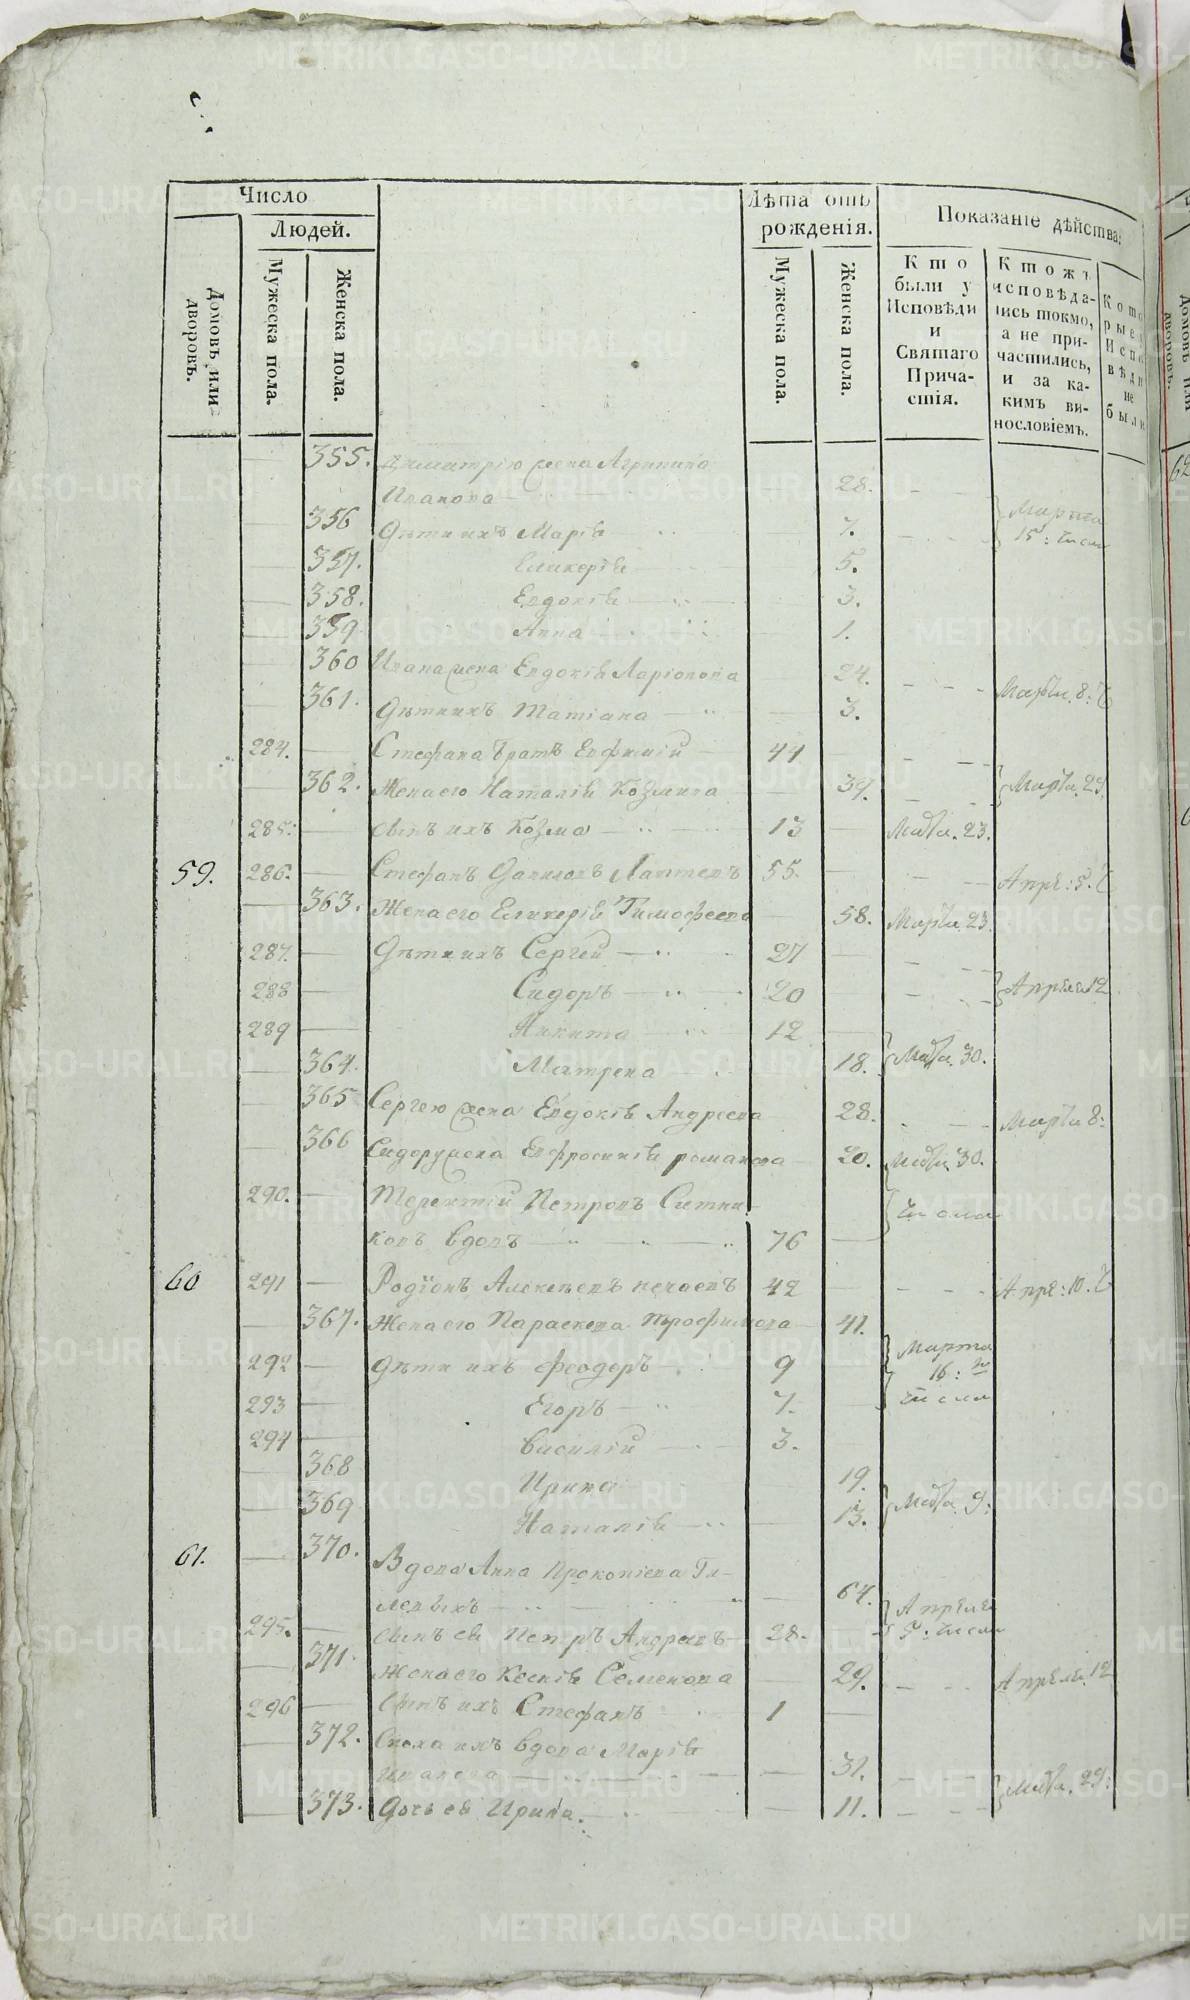 Число
Людей.
Лѣта отъ рожденія.
Показаніе дѣйства;
Домовъ или дворовъ.
Мужеска пола.
Женска пола.
Мужеска пола.
Женска пола.
Кто были у Исповѣди и Святаго Причастія.
Ктожъ исповѣдались токмо, а не причастились, и за какимъ винословіемъ.
Которые у Исповѣди не были
355. Димитрію жена Агрипина
Иванова 28.
356 Дѣти ихъ Марія 7. Марта 15: числа
357. Гликерія 5.
358. Евдокія 3.
359 Анна 1.
360 Ивана жена Евдокія Ларіонова 24. Марта 8:
361. Дѣти ихъ Татіана 3.
284. Стефана братъ Евфимій 44
362. Жена его Наталія Козмина 39. Марта 29.
285. Сынъ ихъ Козма 13 Марта 23.
59. 286. Стефанъ Даниловъ Лаптевъ 55. Апре: 5.
363. Жена его Гликерія Тимофеева 58. Марта 23.
287. Дѣти ихъ Сергей 27
288 Сидоръ 20 Апреля 12
289 Никита 12
364. Матрена 18. Марта 30.
365 Сергею жена Евдокія Андреева 28. Марта 8:
366 Сидору жена Евфросинія романова 20. Марта 30.
290. Терентій Петровъ Ситни- числа
ковъ вдовъ 76
60 291 Родіонъ Алексѣевъ нечаевъ 42 Апре: 10.
367. Жена его Параскева трофимова 41.
292 Дѣти ихъ Феодоръ 9 Марта 16: го
293 Егоръ 7. числа
294 Василій 3.
368 Ирина 19.
369 Наталія 13. Марта 9:
61. 370. Вдова Анна Прокопіева Гл-
64. Апреля
295. Сынъ ея Петръ Андреевъ 28. 5: числа
371. Жена его Ксенія Семенова 29. Апреля 12
296 Сынъ ихъ Стефанъ 1
372. Сноха ихъ вдова Марія
Иванова 31. Марта 29:
373. Дочь ея Ирина. 11.
62
METRIKI.GASO-URAL.RU